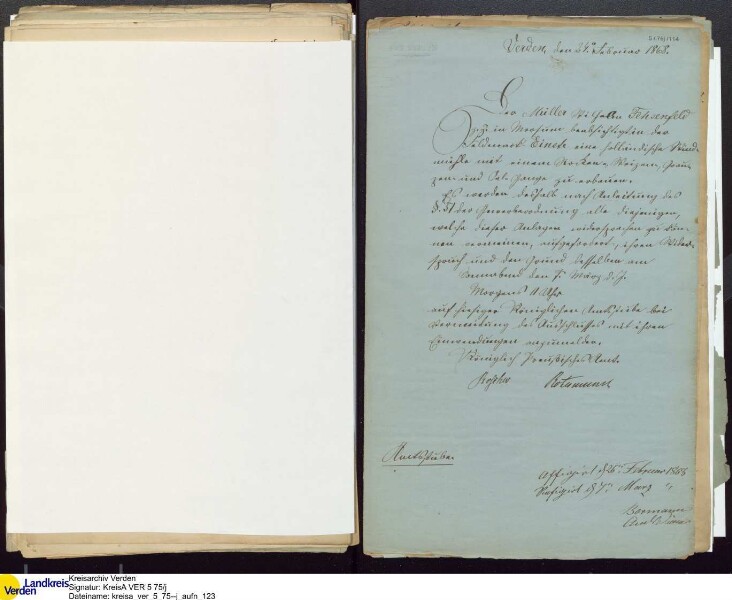 Verden, den 24ten Februar 1868.
Der Müller Wilhelm
in beabsichtigt in der
Feldmark Einste eine holländische Wind-
mühle mit einem Rocken-, Weizen-,
und Gange zu erbauen.
Es werden deshalb nach Anleitung des
der Gewerbeordnung alle diejenigen,
welche dieser Anlage widersprechen zu kön-
nen vermeinen, aufgefordert, ihren Wider-
spruch und den Grund desselben am
Sonnabend den 7. März d. J.
Morgens 11 Uhr
auf hiesiger Königlichen Amtsstube bei
Vermeidung des Ausschlusses mit ihren
Einwendungen anzumelden.
Königlich Preußisches Amt.
Amtsstube.
Affigirt d. 25. Februar 1868
Refigirt d. 7. März "
Bormann
Landkreis
Verden
Kreisarchiv Verden
Signatur: KreisA VER 5 75/j
Dateiname: kreisa_ver_5_75--j_aufn_123